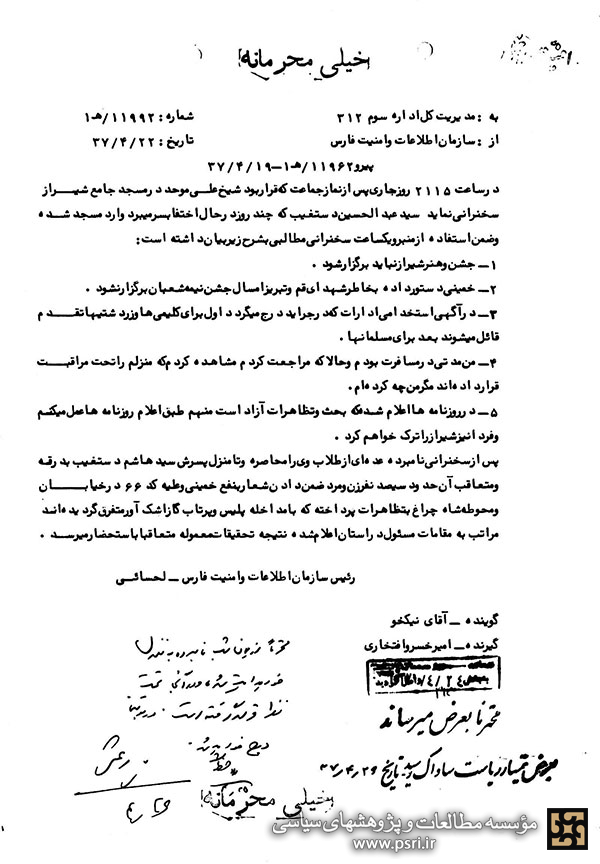 خیلی محرمانه
به : مدیریت کل اداره سوم ۳۱۲
شماره : ۱۱۹۹۲/هـ۱
از : سازمان اطلاعات و امنیت فارس
تاریخ : ۳۷/۴/۲۲
پیرو ۱۱۹۶۲/هـ۱-۳۷/۴/۱۹
در ساعت ۲۱۱۵ روز جاری پس از نماز جماعت که قرار بود شیخ علی موحد در مسجد جامع شیراز
سخنرانی نماید سید عبدالحسین دستغیب که چند روز در حال اختفا بسر میبرد وارد مسجد شده
وضمن استفاده از منبر و یکساعت سخنرانی مطالبی بشرح زیر بیان داشته است :
۱ــ جشن و هنر شیراز نباید برگزار شود .
۲ــ خمینی دستور داده بخاطر شهدای قم و تبریز امسال جشن نیمه شعبان برگزار نشود .
۳ــ در آگهی استخدامی ادارات که در جراید درج میگردد اول برای کلیمی ها و زردشتیها تقدم
قائل میشوند بعد برای مسلمانها .
۴ــ من مدتی در مسافرت بودم و حالا که مراجعت کردم مشاهده کردم که منزلم را تحت مراقبت
قرار داده اند مگر من چه کرده ام .
۵ــ در روزنامه ها اعلام شده که بحث و تظاهرات آزاد است منهم طبق اعلام روزنامه ها عمل میکنم
وفردا نیز شیراز را ترک خواهم کرد .
پس از سخنرانی نامبرده عده ای از طلاب وی را محاصره وتا منزل پسرش سید هاشم دستغیب بدرقه
ومتعاقب آن حدود سیصد نفر زن و مرد ضمن دادن شعار بنفع خمینی و علیه کد ۶۶ در خیابان
ومحوطه شاه چراغ بتظاهرات پرداخته که با مداخله پلیس و پرتاب گاز اشک آور متفرق گردیده اند
مراتب به مقامات مسئول در استان اعلام شده نتیجه تحقیقات معموله متعاقبا باستحضار میرسد .
رئیس سازمان اطلاعات و امنیت فارس ــ لحسائی
گوینده ــ آقای نیکخو
گیرنده ــ امیر خسرو افتخاری
محترما بعرض میرساند
بعرض تیمسار ریاست ساواک رسید. تاریخ ۳۷/۴/۲۶
خیلی محرمانه
مؤسسه مطالعات و پژوهشهای سیاسی
www.psri.ir